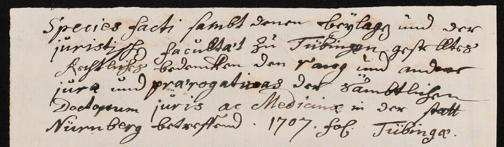 Species facti sambt denen beylagen und der
juristischen facultät zu Tübingen gestelltes
Rechtliches bedencken den rang und andere
jura und prærogativas der sämbtlichen
Doctorum juris ac Medicinæ in der statt
Nürnberg betreffend. 1707. fol. Tübingæ.